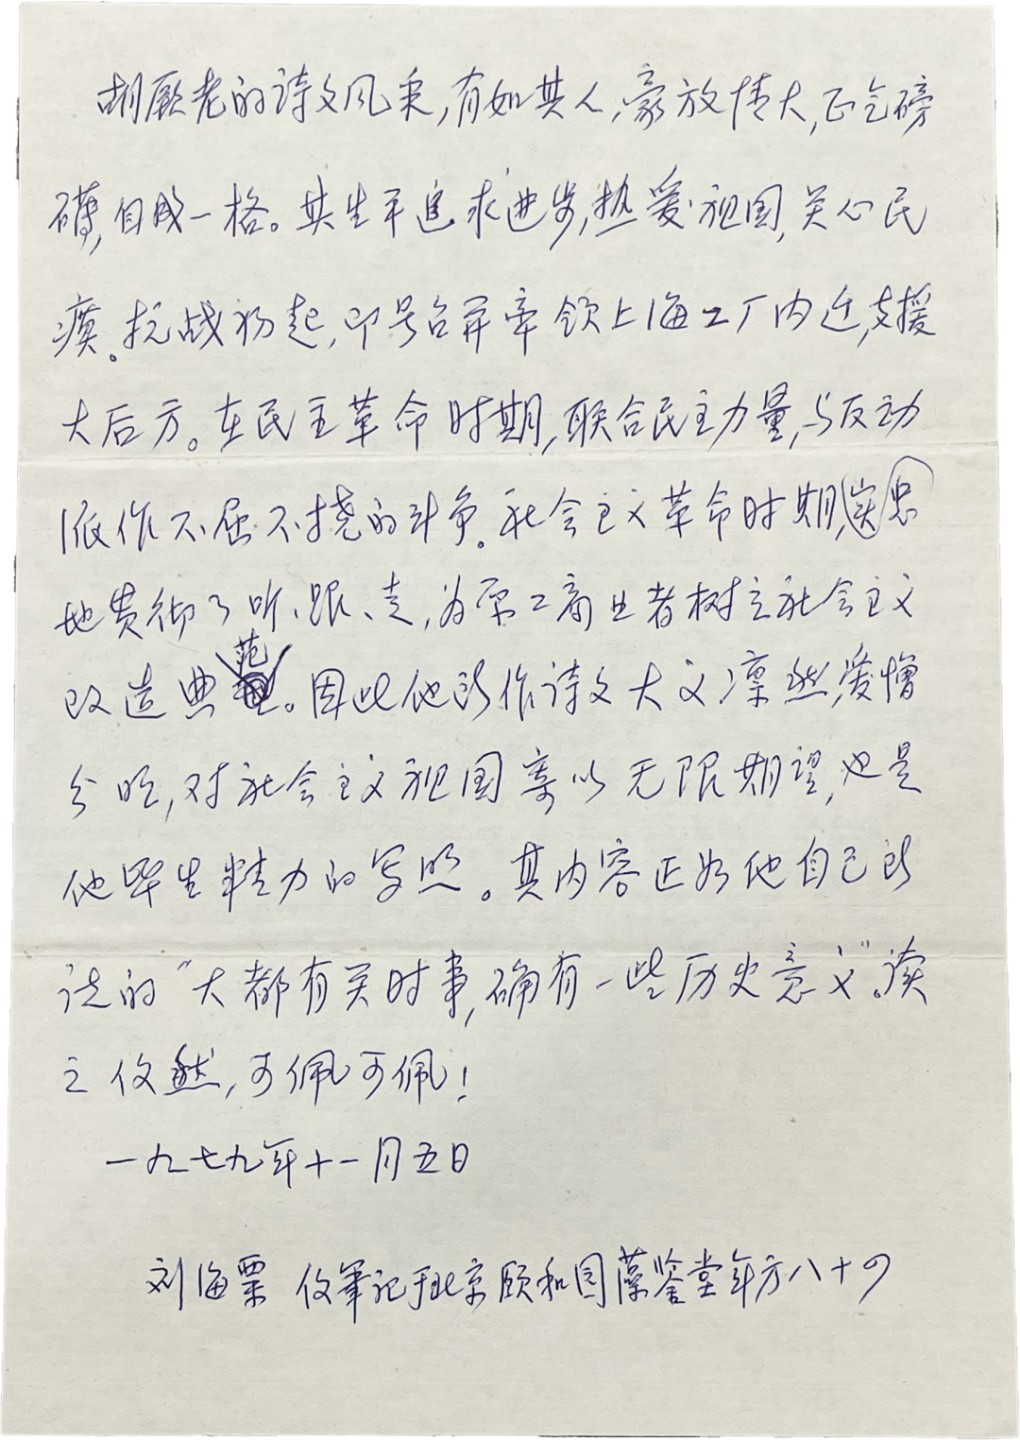 胡厥老的诗文风采,有如其人,豪放博大,正气磅
礴,自成一格。其生平追求进步,热爱祖国,关心民
瘼。抗战初起,即号召并牵领上海工厂内迁,支援
大后方。在民主革命时期,联合民主力量,与反动
派作不屈不挠的斗争。社会主义革命时期,忠实
地贯彻了听、跟、走,为原工商业者树立社会主义
改造典范。因此他所作诗文大义凛然,爱憎
分明,对社会主义祖国寄以无限期望,也是
他毕生精力的写照。其内容正如他自己所
说的“大都有关时事,确有一些历史意义”。读
之攸然,可佩可佩!
一九七九年十一月五日
刘海粟 攸笔记于北京颐和园藻鉴堂年方八十四